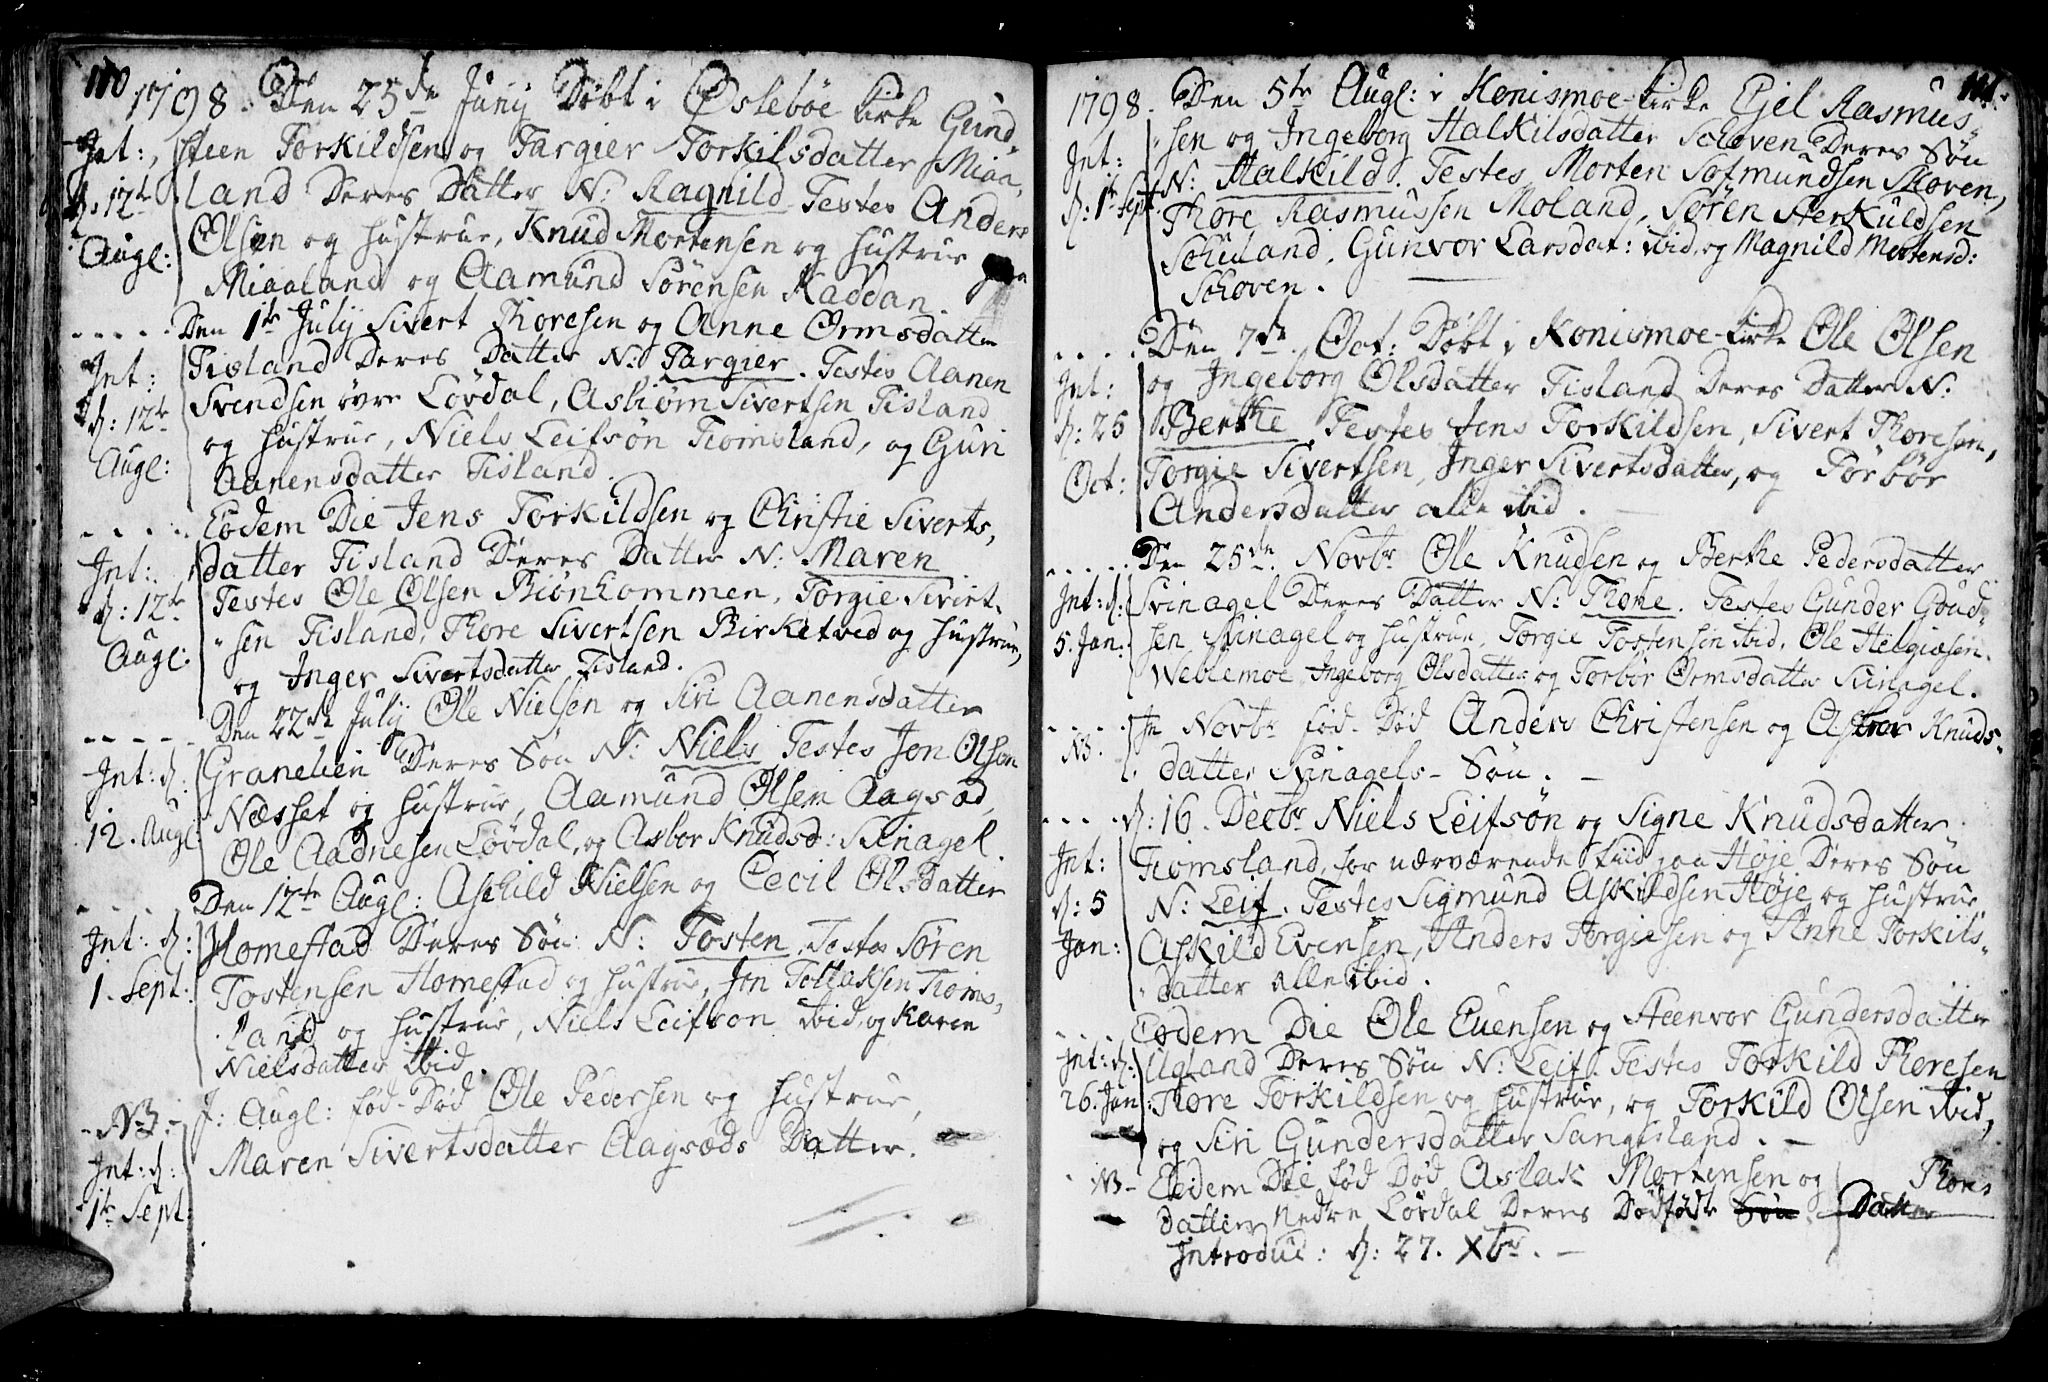 110
1798. Den 25de Juny Döbt i Ösleböe kirke Gund,
Int: steen Torkildsen og Targier Torkilsdatter Miaa,
d: 12te land Deres Datter N: Ragnild Testes Anders
Augl: Olsen og hustrue, Knud Mortensen og hustrue
Miaaland og Aamund Sörensen Kaddan
Den 1te July Sivert Thoresen og Anne Ormsdatter
Int: Tisland Deres Datter N: Targier. Testes Aanen
d: 12te Svendsen övre Lövdal, Asbiörn Sivertsen Tisland
og hustrue, Niels Leifsön Tiomsland, og Guri
Augl: Aanensdatter Tisland.
Eodem Die Jens Torkildsen og Christie Siverts,
Int: datter Tisland Deres Datter N: Maren
d: 12te Testes Ole Olsen Biönkommen, Torgie Sivert,
Augl: sen Tisland, Thore Sivertsen Birketved og hustrue,
og Inger Sivertsdatter Tisland.
Den 22de July Ole Nielsen og Siri Aanensdatter
Int: d. Granelien Deres Sön N: Niels Testes Jon Olsen
12. Augl: Næsset og hustrue, Aamund Olsen Aagsæd,
Ole Aadnesen Lövdal, og Asbor Knudsd: Svinagel
Den 12te Augl: Askild Nielsen og Cecil Olsdatter
Int: d: Homestad Deres Sön N: Tosten. Testes Sören
1. Sept: Tostensen Homestad og hustrue, Jon Tollaksen Tioms,
land og hustrue, Niels Leifson ibid, og Karen
Nielsdatter ibid.
NB. I: Augl: föd-Död Ole Pedersen og hustrue,
Int: d: Maren Sivertsdatter Aagsæds Datter.
1te Sept:
111.
1798. Den 5te Augl: i Konismoe-kirke Ejel Rasmus,
Int: sen og Ingeborg Halkilsdatter Schoven Deres Sön
d: 1te Sept. N: Halkild. Testes Morten Sotmundsen Skoven,
Thore Rasmussen Moland, Sören Herkuldsen
Schuland, Gunvor Larsdat: ibid, og Magnild Mortensd:
Schoven.
Den 7de Oct: Döbt i Konismoe-kirke Ole Olsen
Int: og Ingeborg Olsdatter Tisland Deres Datter N:
d: 25 Berthe Testes Jens Torkildsen, Sivert Thoresen,
Oct: Torgie Sivertsen, Inger Sivertsdatter, og Torbör
Andersdatter alle ibid.
Den 25de Novbr Ole Knudsen og Berthe Pedersdatter
Int: d: Svinagel Deres Datter N: Thone. Testes Gunder Goud,
5. Jan: sen Svinagel og hustrue, Torgie Tostensen ibid, Ole Helgiesen
Weblemoe, Ingeborg Olsdatter og Torbör Ormsdatter Svinagel.
NB. In Novbr föd-Död Anders Christensen og Knuds-
datter Svinagels-Sön.
d: 16. Decbr Niels Leifsön og Signe Knudsdatter
Int: Tiomsland, for nærværende tiid paa Höje Deres Sön
d: 5 N: Leif. Testes Sigmund Askildsen Höje og hustrue
Jan: Askild Evensen, Anders Torgiesen og Anne Torkils-
datter alle ibid.
Eodem Die Ole Evensen og Steenvor Gundersdatter
Int: d: Ugland Deres Sön N: Leif. Testes Torkild Thoresen
26. Jan Thore Torkildsen og hustrue, og Torkild Olsen ibid,
og Siri Gundersdatter Sangesland.
NB- Eodem Die föd Död Aslak Mortensen og Thors
datter Nedre Lövdal Deres Dödföde Sön Datter
Introduc: d: 27. Xbr.